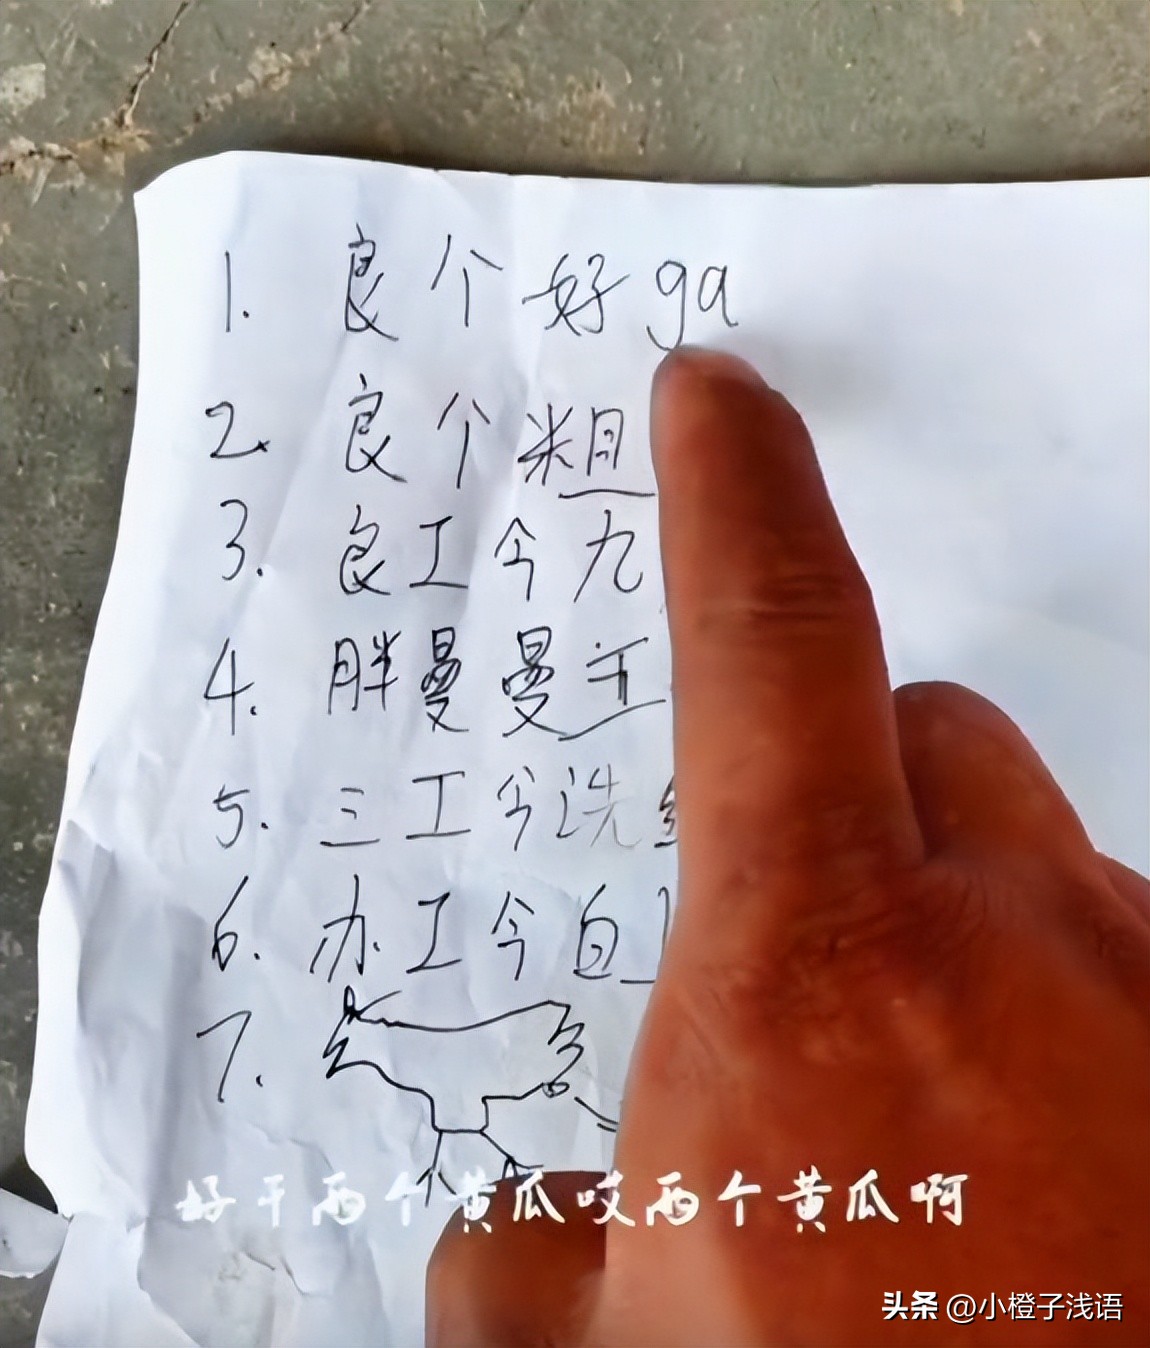 1. 良个好ga
2. 良个粗
3. 良工今九
4. 胖曼曼
5. 三工今洗
6. 办工今白
7.
好干两个黄瓜吱两个黄瓜啊
头条 @小橙子浅语